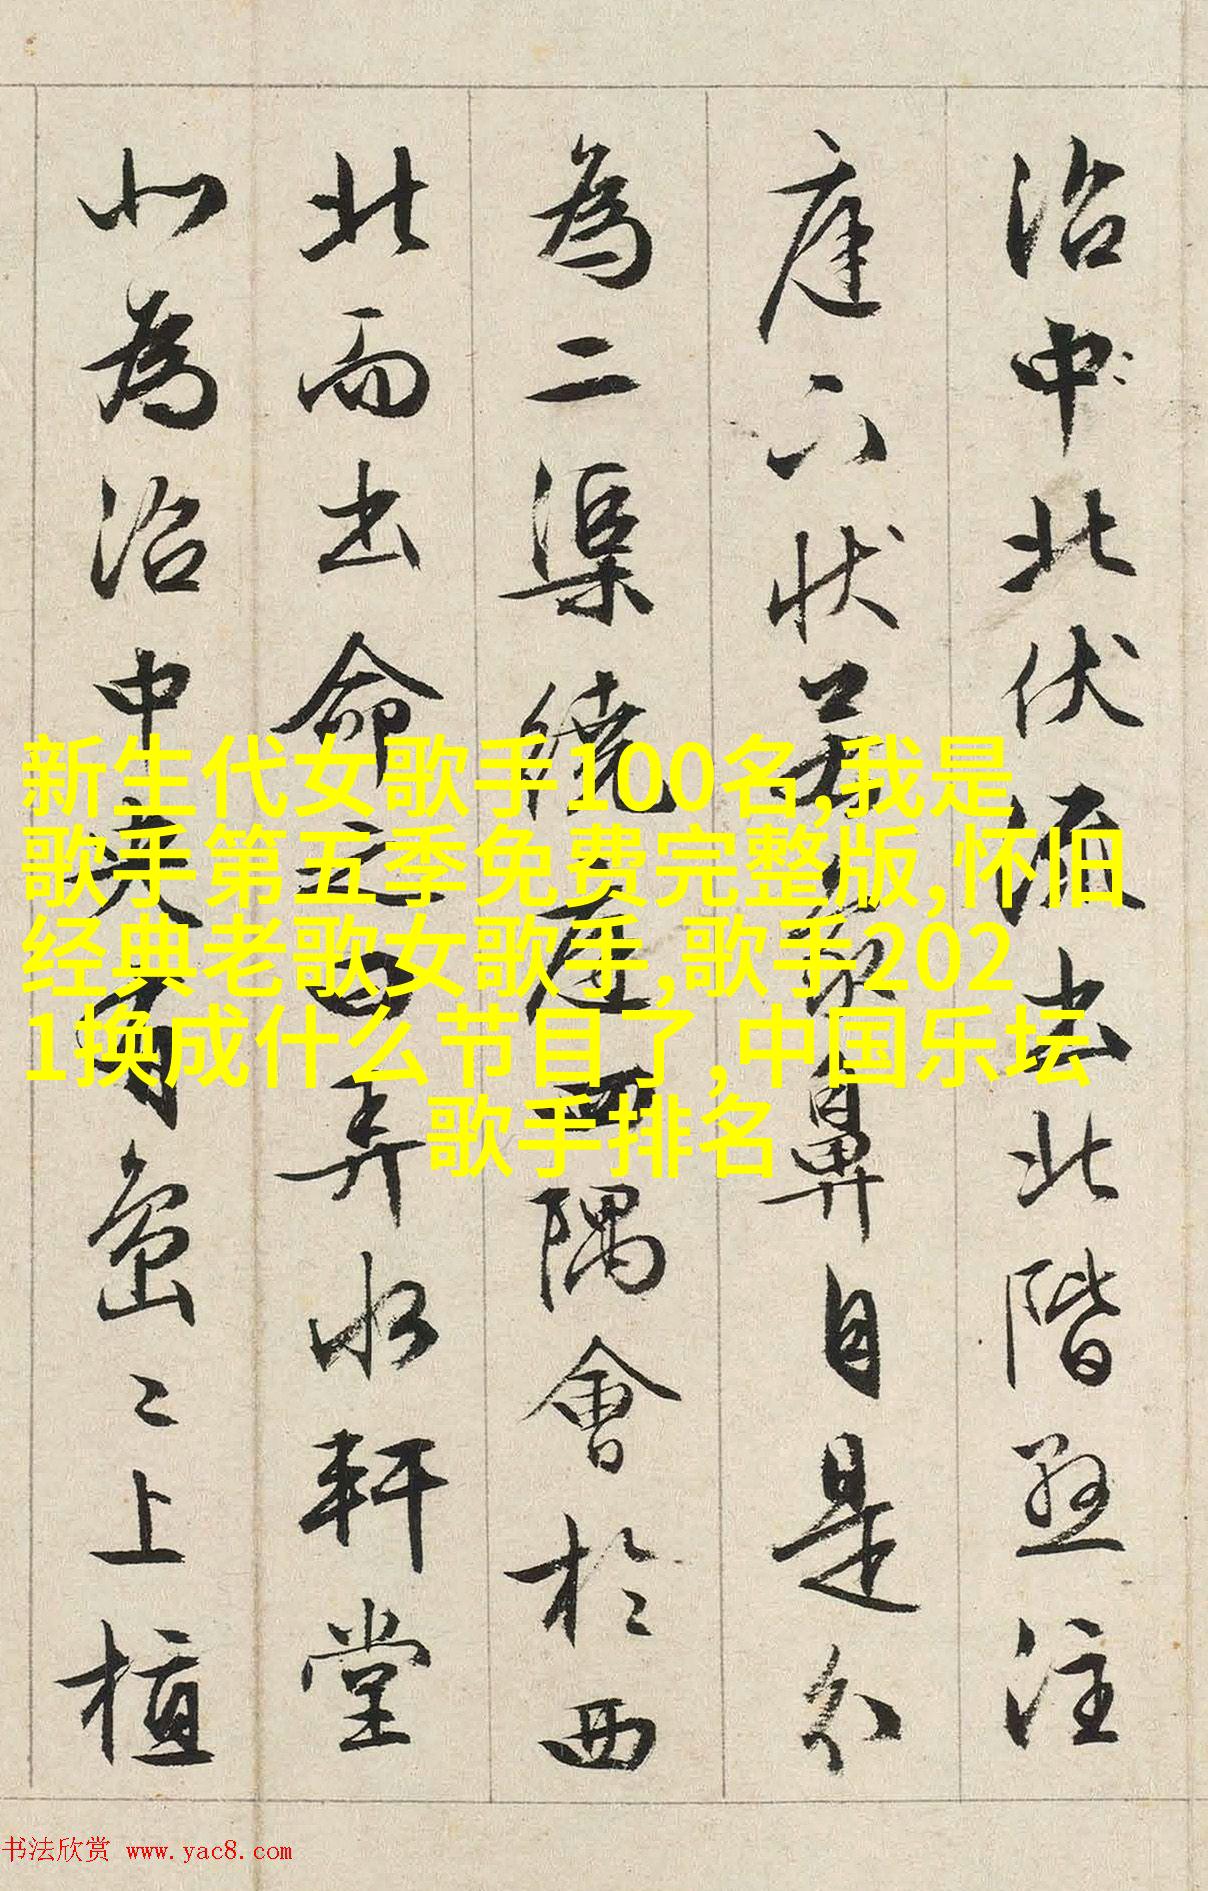 沼中北伏流出北階懸注
庭下狀若象鼻自是分
為二渠繞庭四隅會於西
北而出命之曰弄水軒堂
北為沼中央有島〻上植
新生代女歌手100名,我是
歌手第五季免费完整版,怀旧
经典老歌女歌手,歌手202
1换成什么节目了,中国乐坛
歌手排名
书法欣赏 www.yac8.com